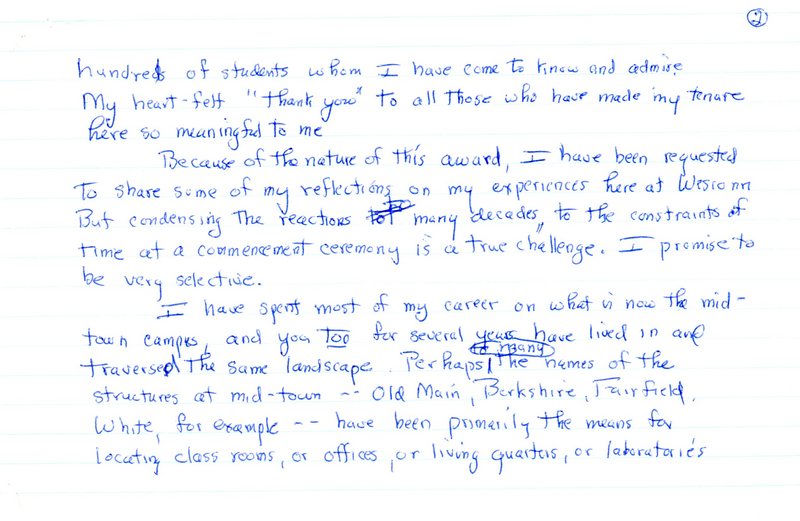 2
hundreds of students whom I have come to know and admire
My heart-felt "thank you" to all those who have made my tenure
here so meaningful to me
Because of the nature of this award, I have been requested
To share some of my reflections on my experiences here at Wesconn
But condensing the reactions of many decades, to the constraints of
time at a commencement ceremony is a true challenge. I promise to
be very selective.
I have spent most of my career on what is now the mid-
town campus, and you too for several years have lived in and
traversed the same landscape. Perhaps to many the names of the
structures at mid-town -- Old Main, Berkshire, Fairfield,
White, for example -- have been primarily the means for
locating class rooms, or offices, or living quarters, or laboratories